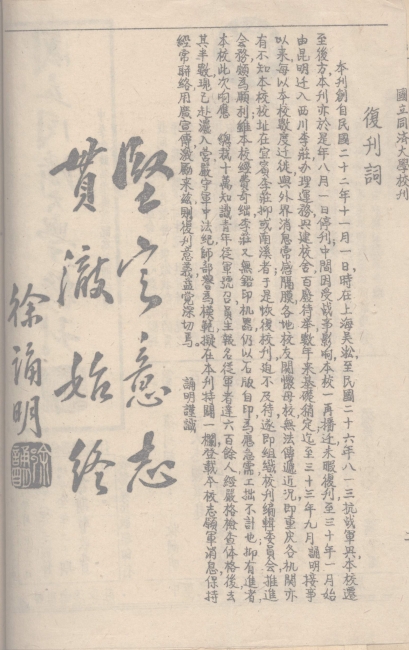 國立同濟大學校刊
復刊詞
本刊創自民國二十二年十一月一日時在上海吳淞至民國二十六年八一三抗戰軍興本校遷
至後方本刊亦於是年八月一日停刊中間因受戰事影响本校一再播遷未暇復刊至三十年一月始
由昆明遷入西川李莊辦理運務與建校舍百廢待舉數年來基礎稍定迄至三十三年九月誦明接事
以來每以本校數度迁徙與外界消息常感隔膜各地校友関懷母校無法備通近況即重庆各机関亦
有不知本校校址在宜賓李莊抑或南溪者于是恢復校刊迨不及待遂即組織校刊编輯委員会推進
会務頗為順利雖本校經費奇絀李莊又無鉛印机器仍以石版自印為應急需工拙不計也抑有進者
本校此次响應 總裁十萬知識青年從軍號召員生報名從軍者達六百餘人經嚴格檢查体格後去
其半数現已赴瀘入营嚴守軍中法紀師部譽為模範擬在本刊特闢一欄登載本校志願軍消息保持
經常聯絡用廣宣傳激勵來茲則復刊意義益覺深切焉 誦明謹識
堅定意志
貫澈始終
徐誦明